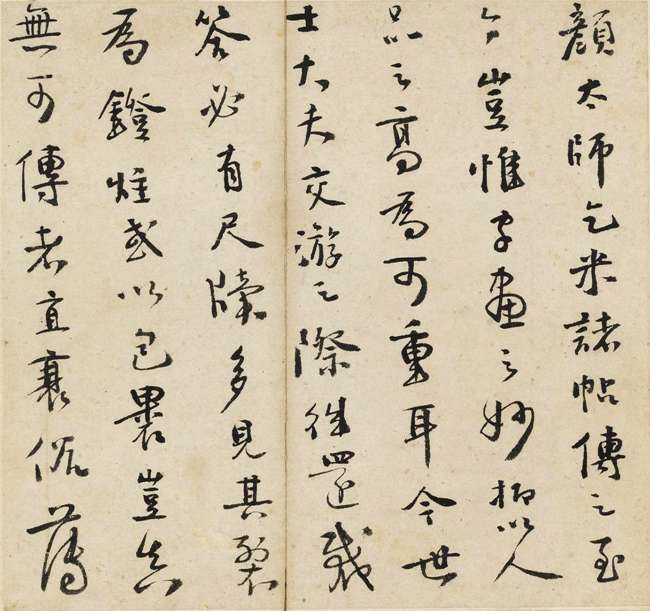 顏太師乞米諸帖傳之至
今豈惟字畫之妙抑以人
品之高為可重耳今世
士大夫交游之際往還裁
答必有尺牘多見其裂
為鐙炷或以包裹豈真
無可傳者直衰俗薄